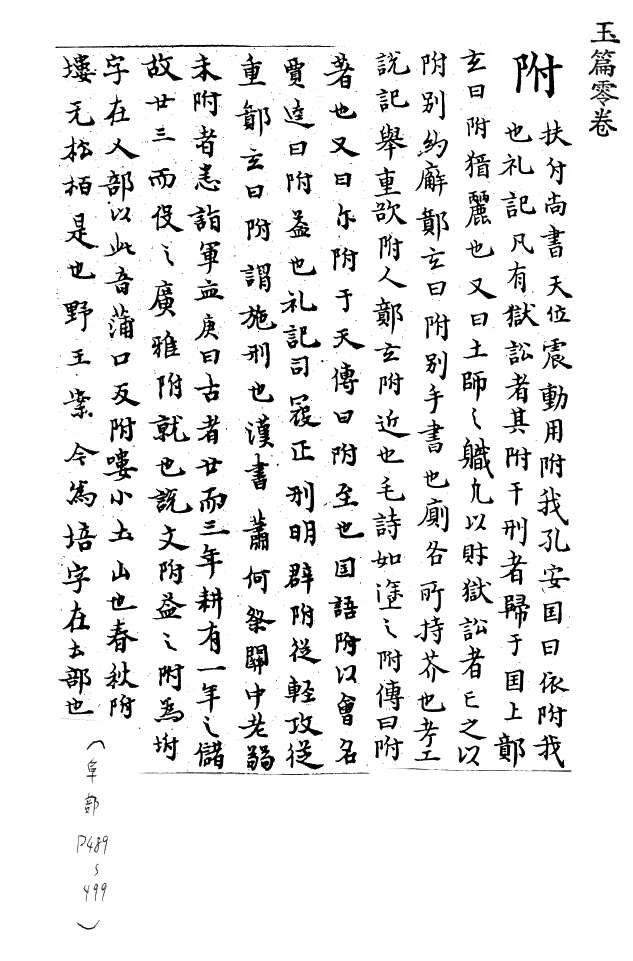 玉篇零卷
附 扶付尚書天位震動用附我孔安国曰依附我
也礼記凡有獄訟者其附于刑者歸于国上鄭
玄曰附猶麗也又曰土師〻軄凡以財獄訟者正之以
附别約廨鄭玄曰附别手書也廁各所持芥也考工
說記舉重欲附人鄭玄附近也毛詩如塗〻附傳曰附
著也又曰尓附于天傳曰附至也国語附以會名
賈逵曰附益也礼記司寇正刑明辟附従輕攻従
重鄭玄曰附謂施刑也漢書蕭何發關中老弱
未附者悉詣軍血庚曰古者廿而三年耕有一年〻儲
故廿三而伇〻廣雅附就也說文附益〻附爲坿
字在人部以此音蒲口反附嘍小土山也春秋附
塿无松栢是也野王案今爲培字在土部也
(阜部 P489
499)